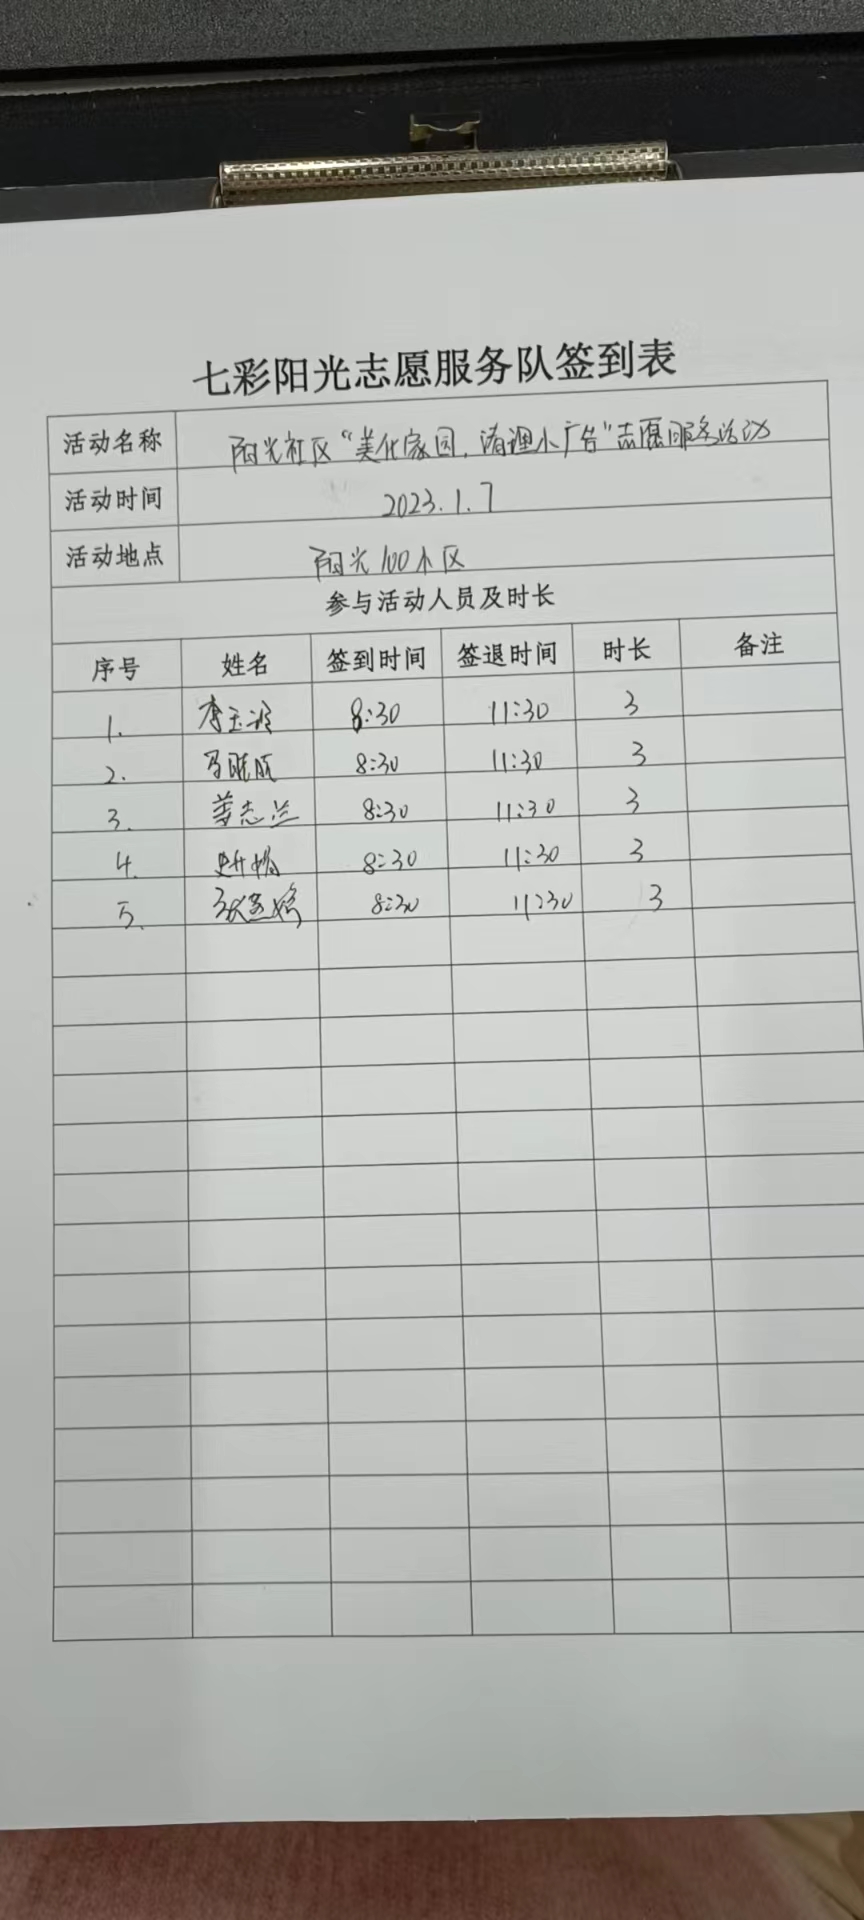 七彩阳光志愿服务队签到表
活动名称 阳光社区“美化家园,清理小广告”志愿服务活动
活动时间 2023.1.7
活动地点 阳光100小区
参与活动人员及时长
序号 姓名 签到时间 签退时间 时长 备注
1. 李玉波 8:30 11:30 3
2. 8:30 11:30 3
3. 姜志兰 8:30 11:30 3
4. 8:30 11:30 3
5. 8:30 11:30 3